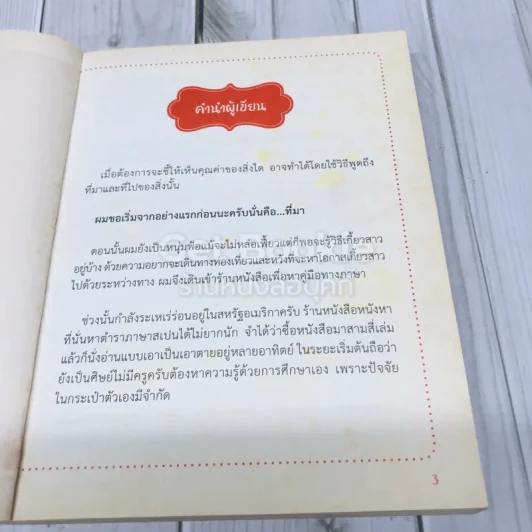 คำนำผู้เขียน
เมื่อต้องการจะชี้ให้เห็นคุณค่าของสิ่งใด อาจทำได้โดยใช้วิธีพูดถึง
ที่มาและที่ไปของสิ่งนั้น
ผมขอเริ่มจากอย่างแรกก่อนนะครับนั่นคือ...ที่มา
ตอนนั้นผมยังเป็นหนุ่มฟ้อแม้จะไม่หล่อเฟี้ยวแต่ก็พอจะรู้วิธีเกี้ยวสาว
อยู่บ้าง ด้วยความอยากจะเดินทางท่องเที่ยวและหวังที่จะหาโอกาสเกี้ยวสาว
ไปด้วยระหว่างทาง ผมจึงเดินเข้าร้านหนังสือเพื่อหาคู่มือทางภาษา
ช่วงนั้นกำลังระเหเร่ร่อนอยู่ในสหรัฐอเมริกาครับ ร้านหนังสือหนังหา
ที่นั่นหาตำราภาษาสเปนได้ไม่ยากนัก จำได้ว่าซื้อหนังสือมาสามสี่เล่ม
แล้วก็นั่งอ่านแบบเอาเป็นเอาตายอยู่หลายอาทิตย์ ในระยะเริ่มต้นถือว่า
ยังเป็นศิษย์ไม่มีครูครับต้องหาความรู้ด้วยการศึกษาเอง เพราะปัจจัย
ในกระเป๋าตัวเองมีจำกัด
3